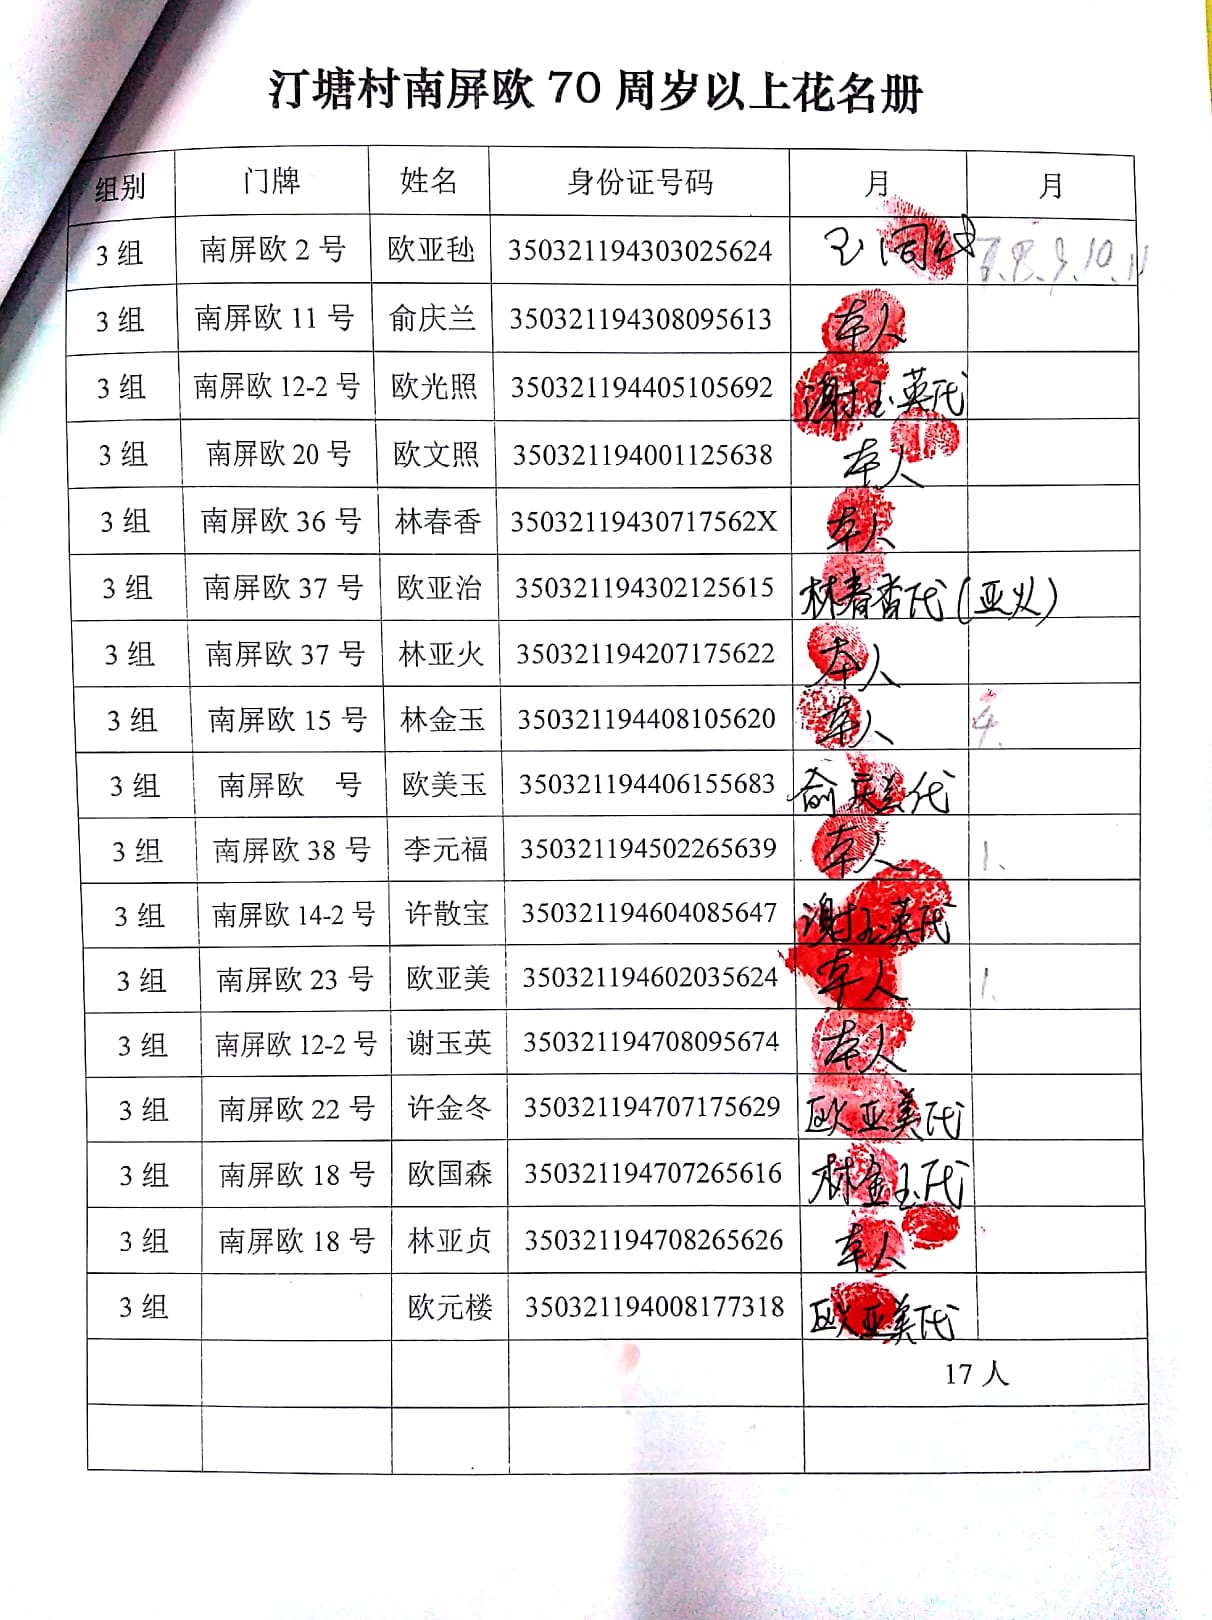 汀塘村南屏欧 70 周岁以上花名册
组别 门牌 姓名 身份证号码 月 月
3 组 南屏欧 2 号 欧亚毜 350321194303025624 7.8.9.10.11
3 组 南屏欧 11 号 俞庆兰 350321194308095613 本人
3 组 南屏欧 12-2 号 欧光照 350321194405105692 谢玉英代
3 组 南屏欧 20 号 欧文照 350321194001125638 本人
3 组 南屏欧 36 号 林春香 35032119430717562X 本人
3 组 南屏欧 37 号 欧亚治 350321194302125615 林春香代(亚火)
3 组 南屏欧 37 号 林亚火 350321194207175622 本人
3 组 南屏欧 15 号 林金玉 350321194408105620 本人 4.
3 组 南屏欧 号 欧美玉 350321194406155683 俞庆兰代
3 组 南屏欧 38 号 李元福 350321194502265639 本人 1、
3 组 南屏欧 14-2 号 许散宝 350321194604085647 谢玉英代
3 组 南屏欧 23 号 欧亚美 350321194602035624 本人 1、
3 组 南屏欧 12-2 号 谢玉英 350321194708095674 本人
3 组 南屏欧 22 号 许金冬 350321194707175629 欧亚美代
3 组 南屏欧 18 号 欧国森 350321194707265616 林金玉代
3 组 南屏欧 18 号 林亚贞 350321194708265626 本人
3 组 欧元楼 350321194008177318 欧亚美代
17 人